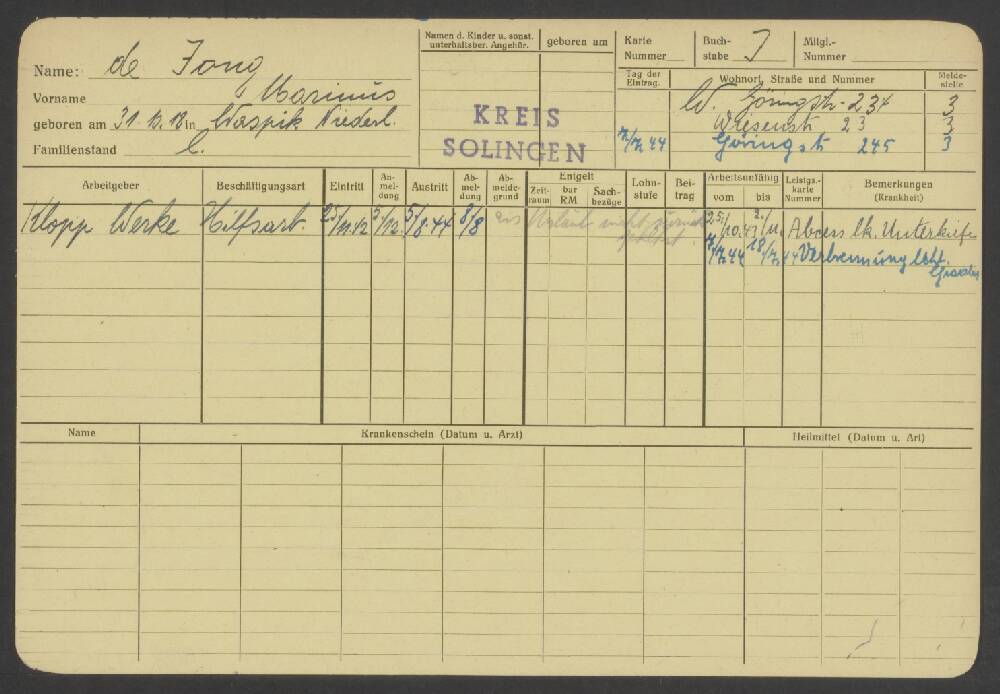 Name: de Jong
Vorname Marinus
geboren am 31.10.18 in Waspik Niederl.
Familienstand l.
Namen d. Kinder u. sonst. unterhaltsber. Angehör.
geboren am
KREIS
SOLINGEN
Karte Nummer
Buchstabe J
Mitgl.-Nummer
Tag der Eintrag.
Wohnort, Straße und Nummer
Meldestelle
W. Göringstr. 234 3
Weisenstr. 23 3
7/7.44 Göringstr. 245 3
Arbeitgeber
Beschäftigungsart
Eintritt
An-mel-dung
Austritt
Ab-mel-dung
Ab-melde-grund
Entgelt
Zeit-raum
bar RM
Sach-bezüge
Lohn-stufe
Bei-trag
Arbeitsunfähig
vom
bis
Leistgs.-karte Nummer
Bemerkungen (Krankheit)
Klopp Werke Hilfsarb. 25/11.42 3/12. 5/8.44 8/8 aus Urlaub nicht zurück 25./10.43 2./11. Abcess lk. Unterkiefer
gekehrt. 7/7.44 18/7.44 Verbrennung
Name
Krankenschein (Datum u. Arzt)
Heilmittel (Datum u. Art)